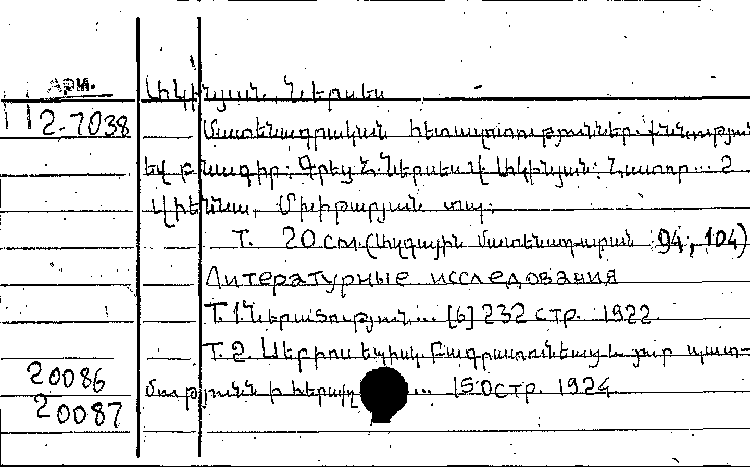 Арм.
Ակինյան, Ներսես
П2-7038
Մատենագրական հետազոտություններ. Քննություն
եվ բնագիր: Գրեց Հ. Ներսես Վ. Ակինյան: Հատոր... 2
Վիեննա, Մխիթարյան տպ:
Т. 20 см. (Ազգային մատենադարան 94; 104)
Литературные исследования
Т. 1. Ներածություն... [6] 232 стр. 1922.
Т. 2. Սեբիոս եպիսկ. Բագրատունեաց և յուր պատ-
20086
մությունն ի Հերակղ ... 150 стр. 1924
20087